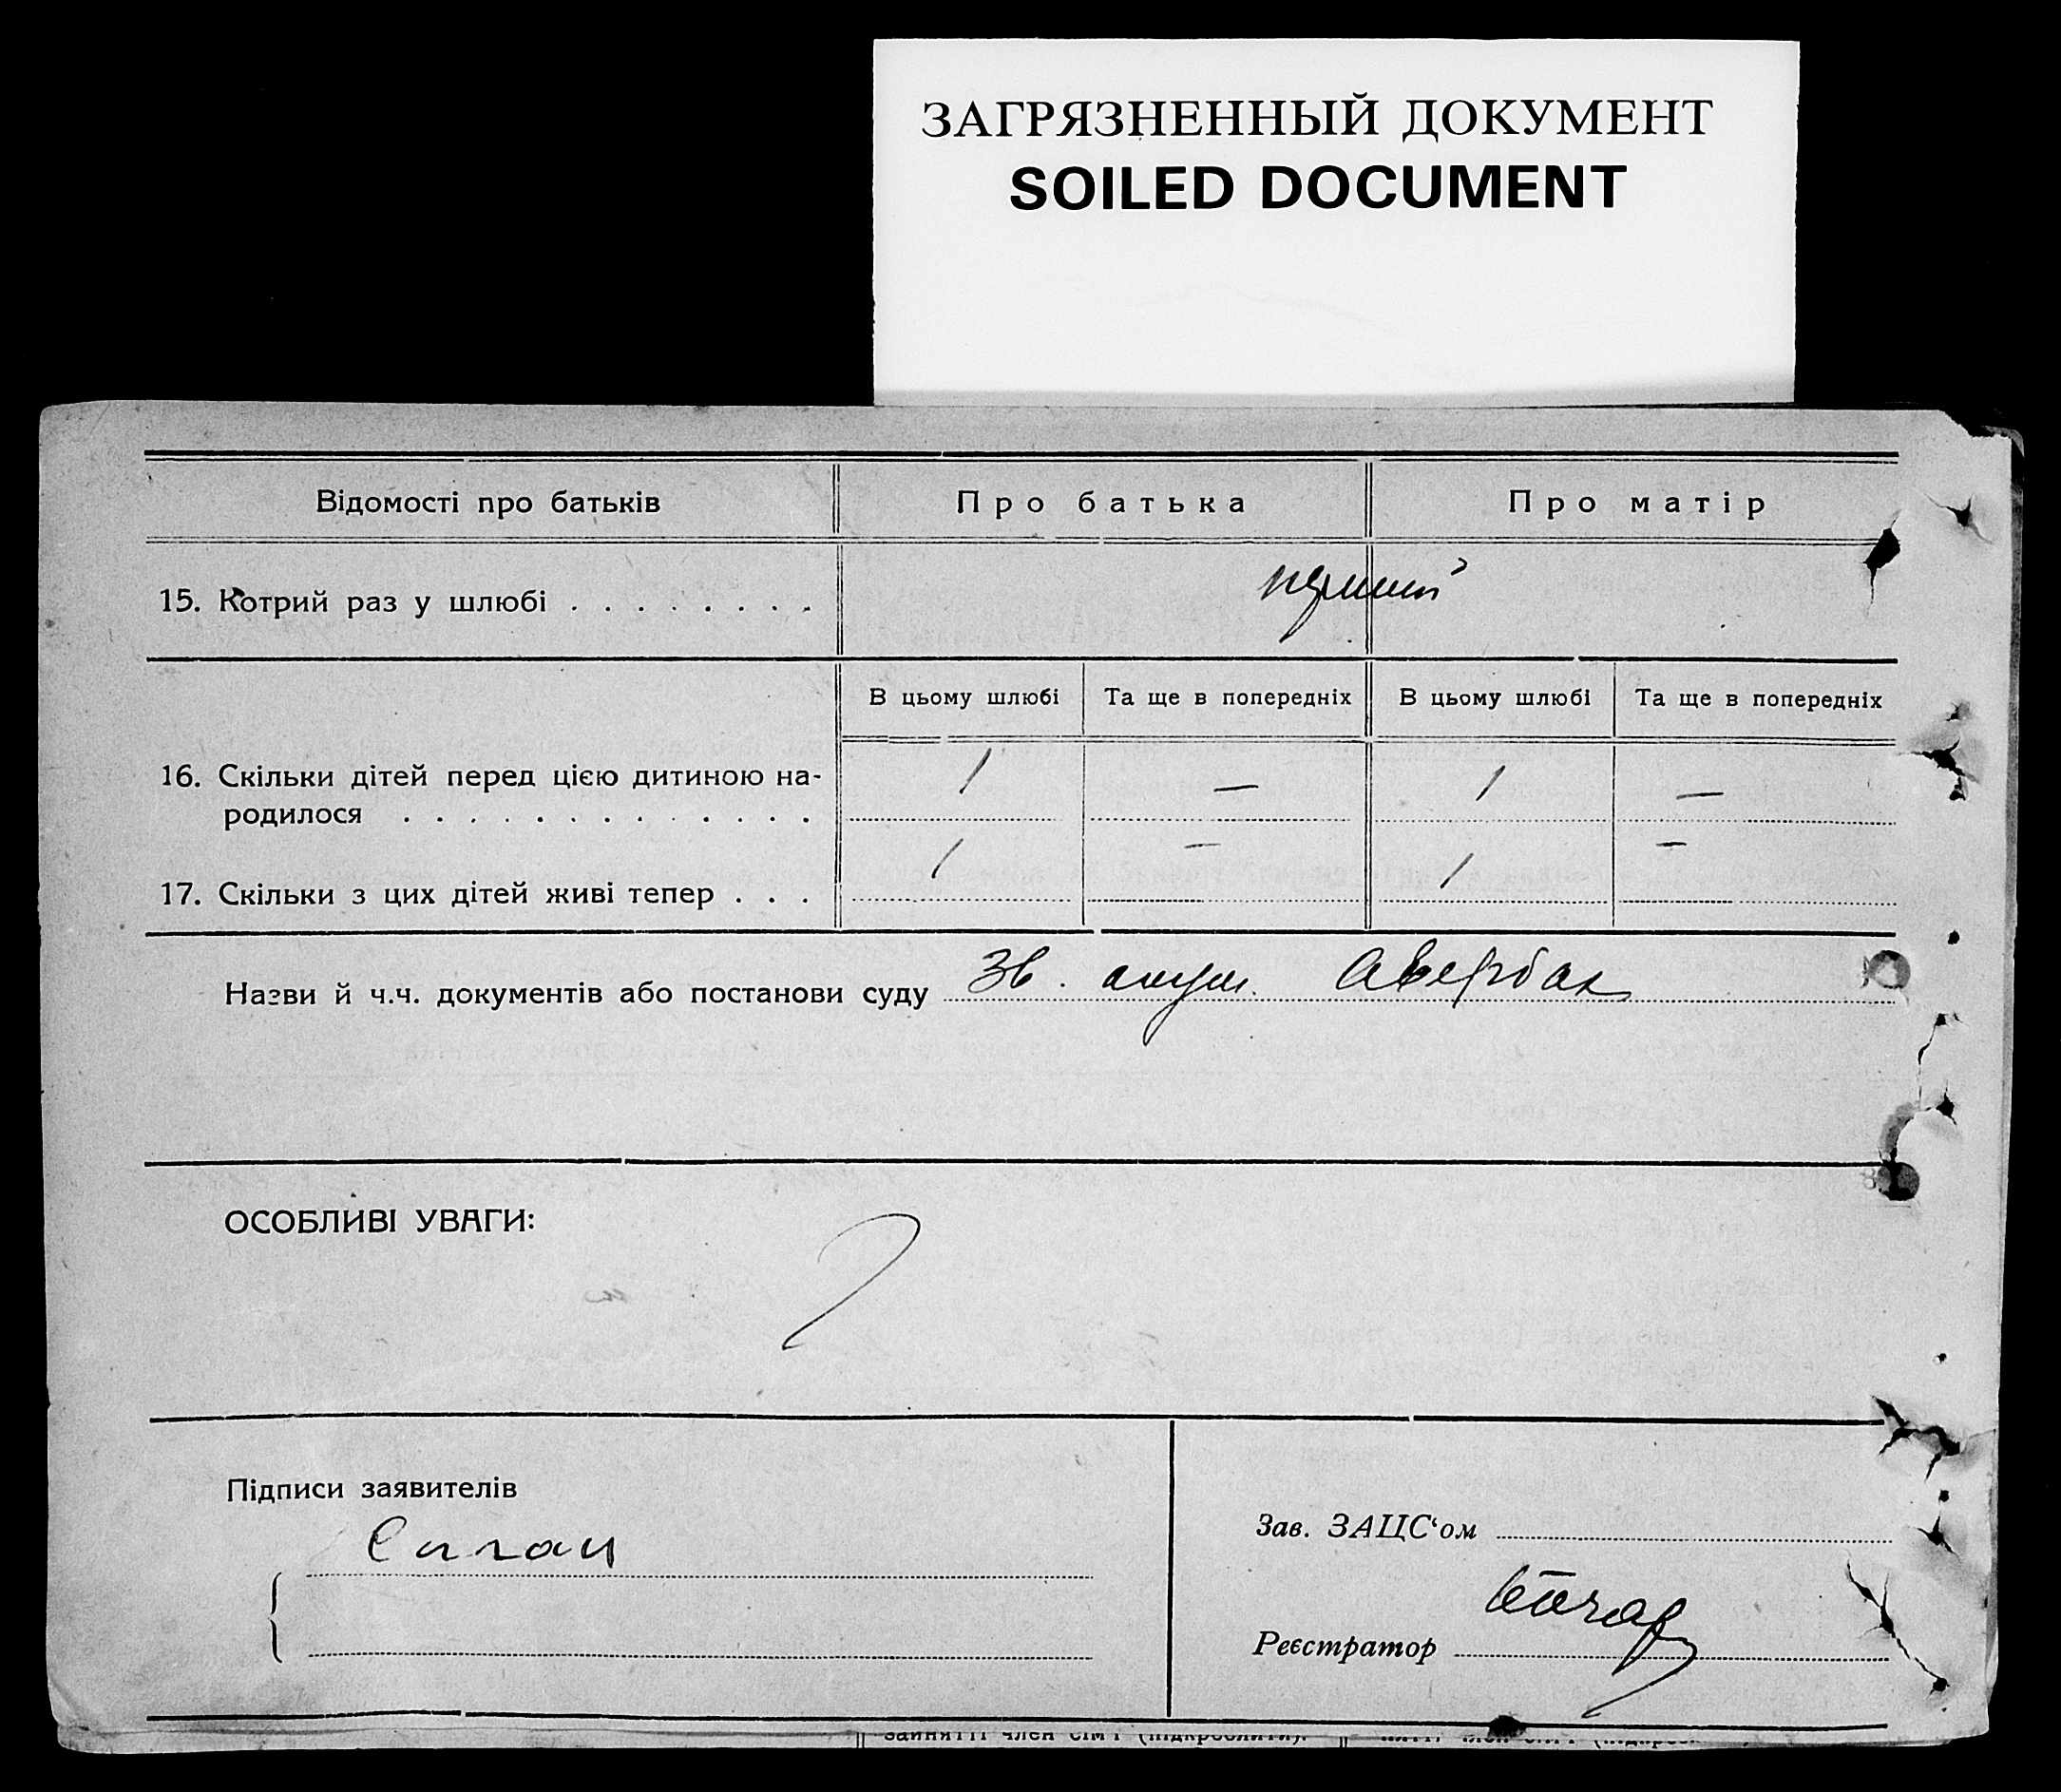 ЗАГРЯЗНЕННЫЙ ДОКУМЕНТ
SOILED DOCUMENT
Відомості про батьків Про батька Про матір
15. Котрий раз у шлюбі . . . . . . . . перший
В цьому шлюбі Та ще в попередніх В цьому шлюбі Та ще в попередніх
16. Скільки дітей перед цією дитиною на- 1 — 1 —
родилося . . . . . . . . . . . . .
17. Скільки з цих дітей живі тепер . . . 1 — 1 —
Назви й ч.ч. документів або постанови суду Зв. акуш. Авербах
ОСОБЛИВІ УВАГИ:
Підписи заявителів
Зав. ЗАЦС‘ом
Реєстратор
зайняттi член сім'ї (підкреслити).